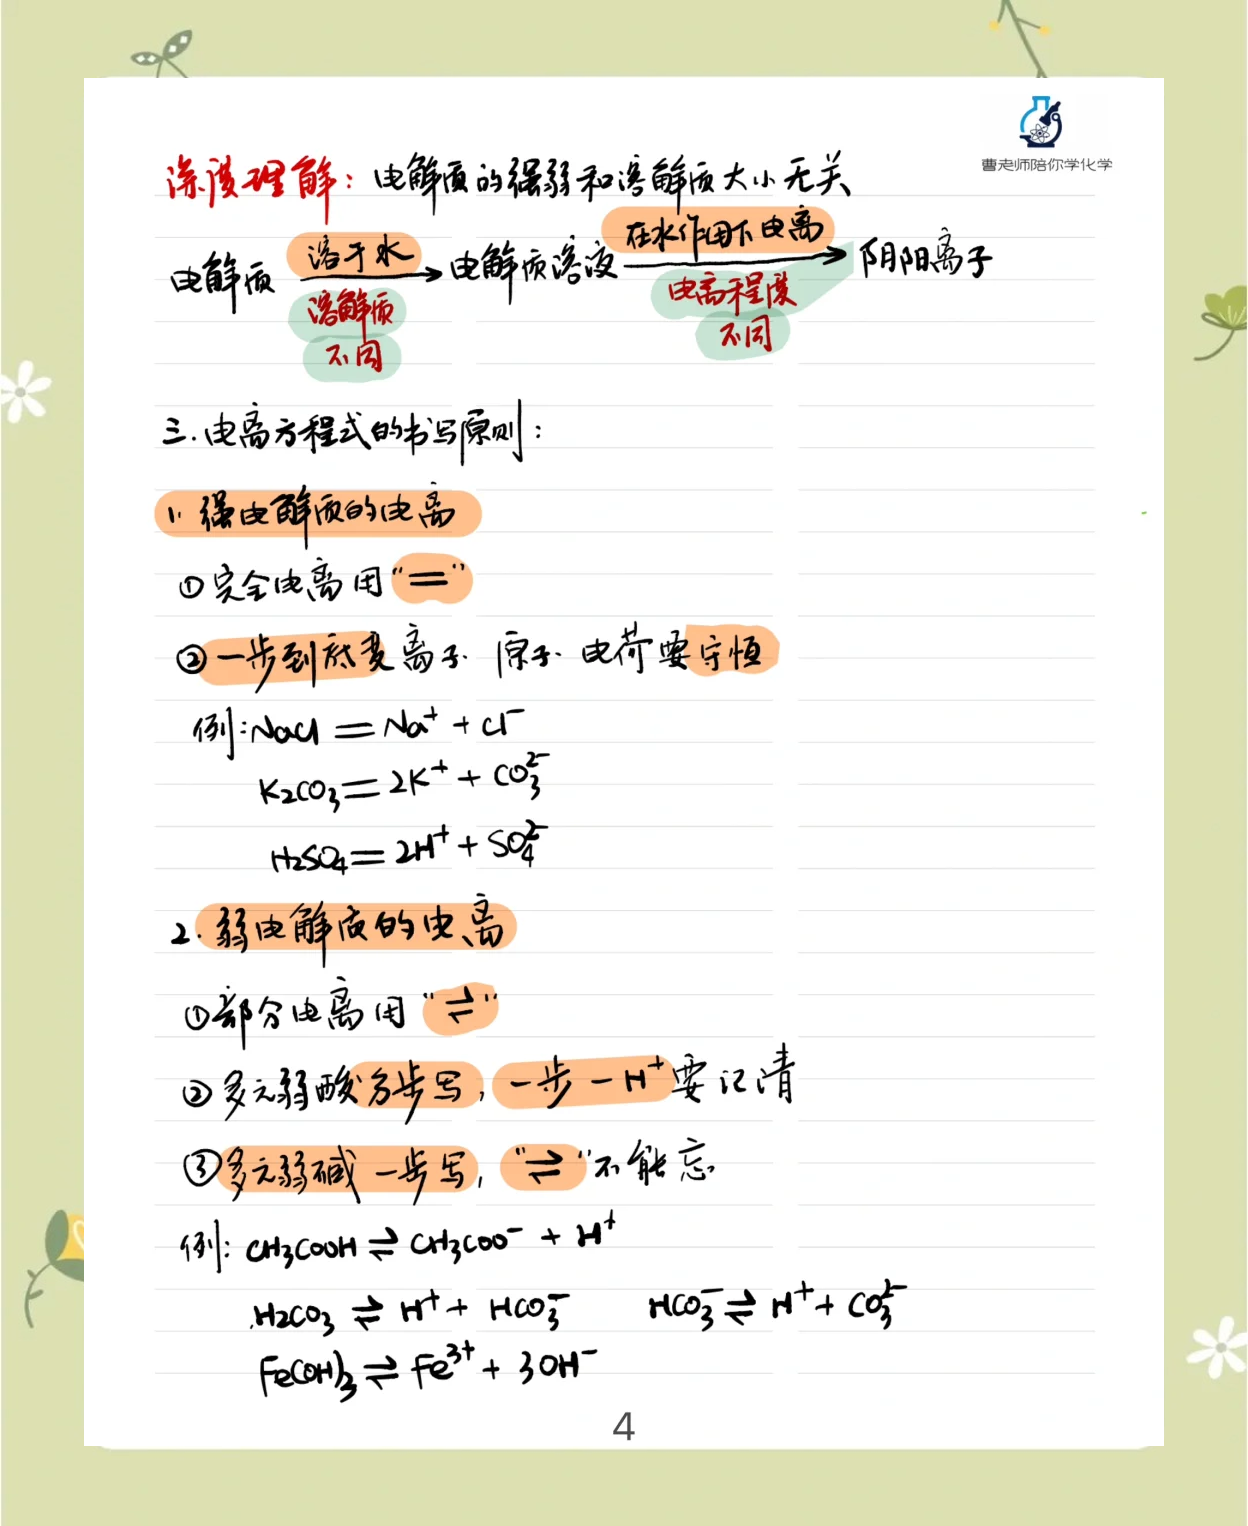 曹老师陪你学化学
深度理解：电解质的强弱和溶解质大小无关
电解质 溶于水 → 电解质溶液 在水作用下电离 → 阴阳离子
溶解质 电离程度
不同 不同
三.电离方程式的书写原则：
1. 强电解质的电离
①完全电离用“═”
②一步到底变离子. 原子. 电荷要守恒
例：NaCl ═ Na⁺ + Cl⁻
K₂CO₃ ═ 2K⁺ + CO₃²⁻
H₂SO₄ ═ 2H⁺ + SO₄²⁻
2. 弱电解质的电离
①部分电离用“⇌”
②多元弱酸分步写，一步一H⁺要记清
③多元弱碱一步写，“⇌”不能忘.
例：CH₃COOH ⇌ CH₃COO⁻ + H⁺
H₂CO₃ ⇌ H⁺ + HCO₃⁻ HCO₃⁻ ⇌ H⁺ + CO₃²⁻
Fe(OH)₃ ⇌ Fe³⁺ + 3OH⁻
4